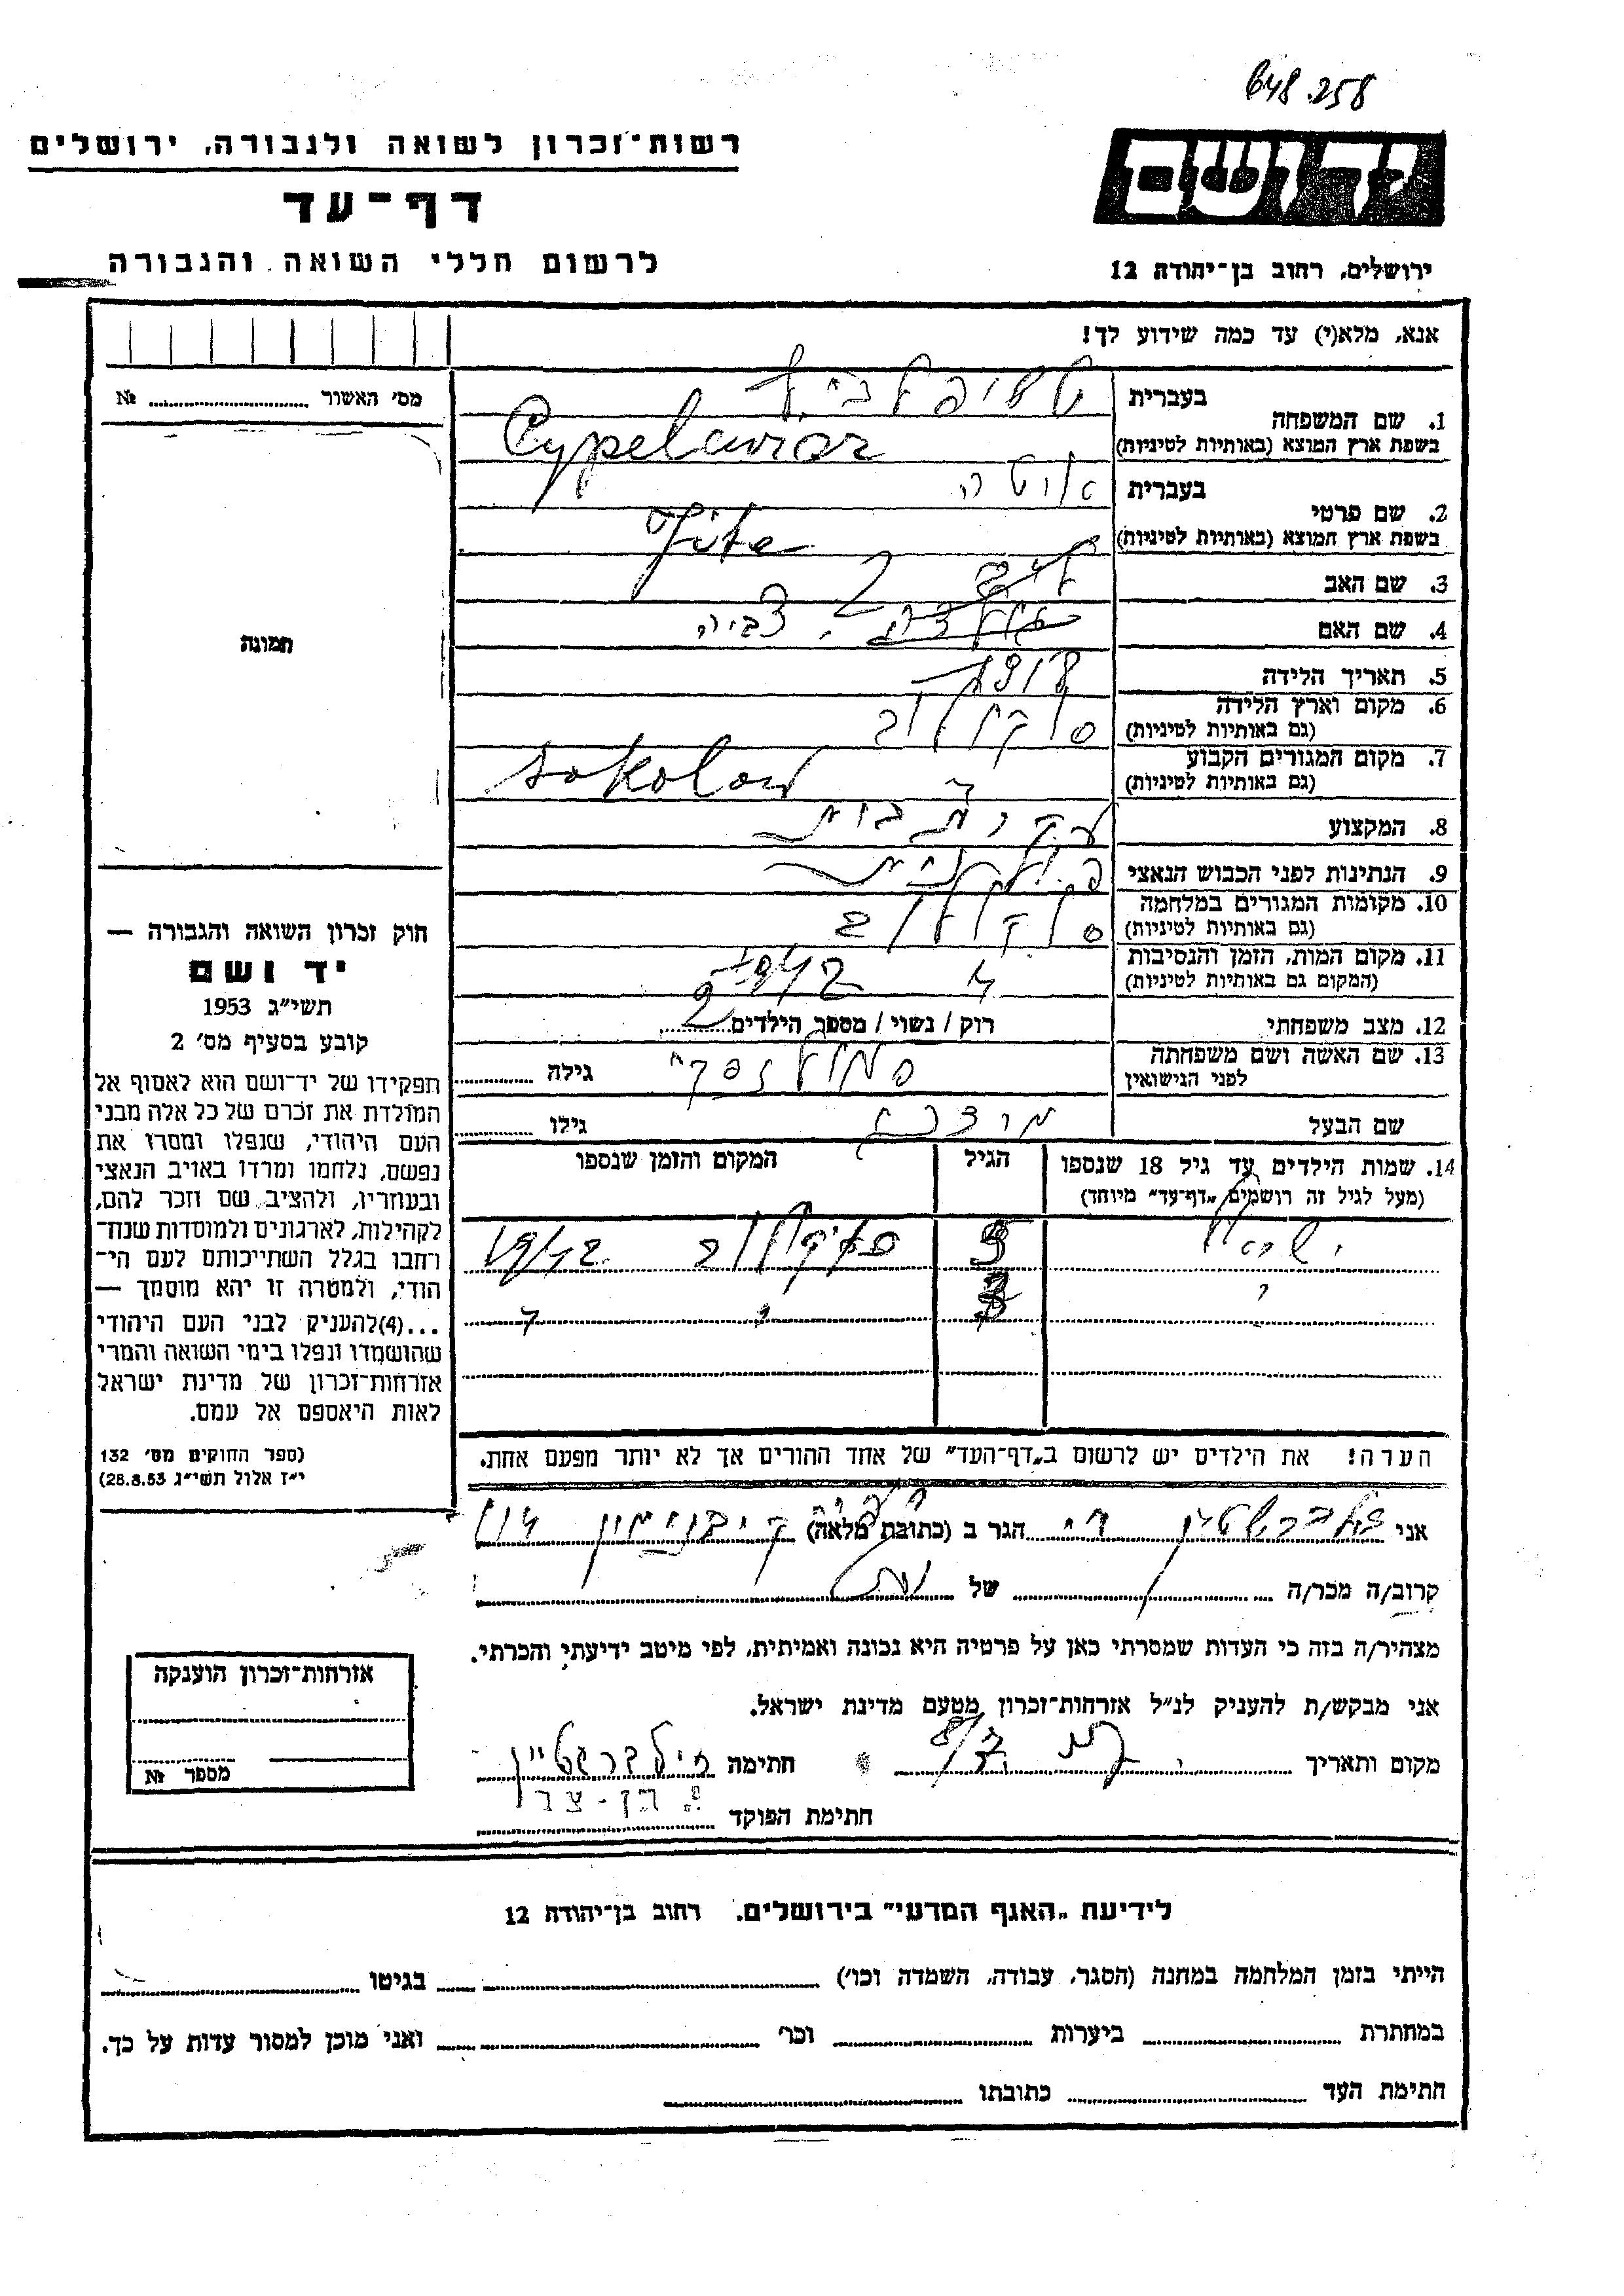 648.258
רשות־זכרון לשואה ולגבורה, ירושלים
דף־עד
לרשום חללי השואה והגבורה
יד ושם
ירושלים, רחוב בן־יהודה 12
אנא, מלא(י) עד כמה שידוע לך!
מס׳ האשור № 
תמונה
בעברית
1. שם המשפחה
בשפת ארץ המוצא (באותיות לטיניות)
בעברית
2. שם פרטי
בשפת ארץ המוצא (באותיות לטיניות)
3. שם האב
4. שם האם צביה
5. תאריך הלידה
6. מקום וארץ הלידה סוקולוב
(גם באותיות לטיניות)
7. מקום המגורים הקבוע Sokolow
(גם באותיות לטיניות)
8. המקצוע עקרת בית
9. הנתינות לפני הכבוש הנאצי פולנית
10. מקומות המגורים במלחמה סוקולוב
(גם באותיות לטיניות)
11. מקום המות, הזמן והנסיבות 1942
(המקום גם באותיות לטיניות)
12. מצב משפחתי רוק / נשוי / מספר הילדים 2
13. שם האשה ושם משפחתה גילה
לפני הנישואין
שם הבעל גילו
14. שמות הילדים עד גיל 18 שנספו הגיל המקום והזמן שנספו
(מעל לגיל זה רושמים „דף־עד״ מיוחד)
1942
הערה! את הילדים יש לרשום ב„דף־העד״ של אחד ההורים אך לא יותר מפעם אחת.
חוק זכרון השואה והגבורה —
יד ושם
תשי״ג 1953
קובע בסעיף מס׳ 2
תפקידו של יד־ושם הוא לאסוף אל
המולדת את זכרם של כל אלה מבני
העם היהודי, שנפלו ומסרו את
נפשם, נלחמו ומרדו באויב הנאצי
ובעוזריו, ולהציב שם וזכר להם,
לקהילות, לארגונים ולמוסדות שנח־
רחבו בגלל השתייכותם לעם הי־
הודי, ולמטרה זו יהא מוסמך —
...(4)להעניק לבני העם היהודי
שהושמדו ונפלו בימי השואה והמרי
אזרחות־זכרון של מדינת ישראל
לאות היאספם אל עמם.
(ספר החוקים מס׳ 132
י״ז אלול תשי״ג 28.8.53)
אני הגר ב (כתובת מלאה)
קרוב/ה מכר/ה של
מצהיר/ה בזה כי העדות שמסרתי כאן על פרטיה היא נכונה ואמיתית, לפי מיטב ידיעתי והכרתי.
אני מבקש/ת להעניק לנ״ל אזרחות־זכרון מטעם מדינת ישראל.
מקום ותאריך חתימה זילברשטיין
חתימת הפוקד
אזרחות־זכרון הוענקה
מספר №
לידיעת „האגף המדעי״ בירושלים. רחוב בן־יהודה 12
הייתי בזמן המלחמה במחנה (הסגר, עבודה, השמדה וכו׳) בגיטו
במחתרת ביערות וכו׳ ואני מוכן למסור עדות על כך.
חתימת העד כתובתו